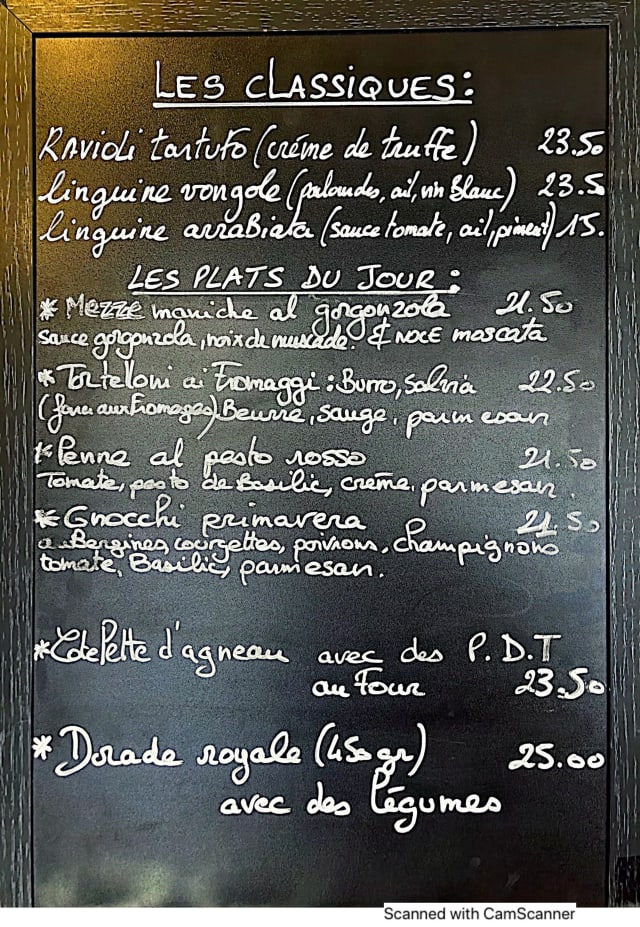 LES CLASSIQUES:
Ravioli tartufo (créme de truffe) 23.50
linguine vongole (palourdes, ail, vin blanc) 23.5
linguine arrabiata (sauce tomate, ail, piment) 15.
LES PLATS DU JOUR:
* Mezze maniche al gorgonzola 21.50
sauce gorgonzola, noix de muscade. & NOCE moscata
* Tortelloni ai Fromaggi: Burro, Salvia 22.50
(aux Fromages) Beurre, sauge, parmesan
* Penne al pesto rosso 21.50
Tomate, pesto de Basilic, crème, parmesan.
* Gnocchi primavera 21.50
auBergines, courgettes, poivrons, champignons
tomate, Basilic, parmesan.
* Cotelette d'agneau avec des P.D.T
au Four 23.50
* Dorade royale (450 gr) 25.00
avec des légumes
Scanned with CamScanner